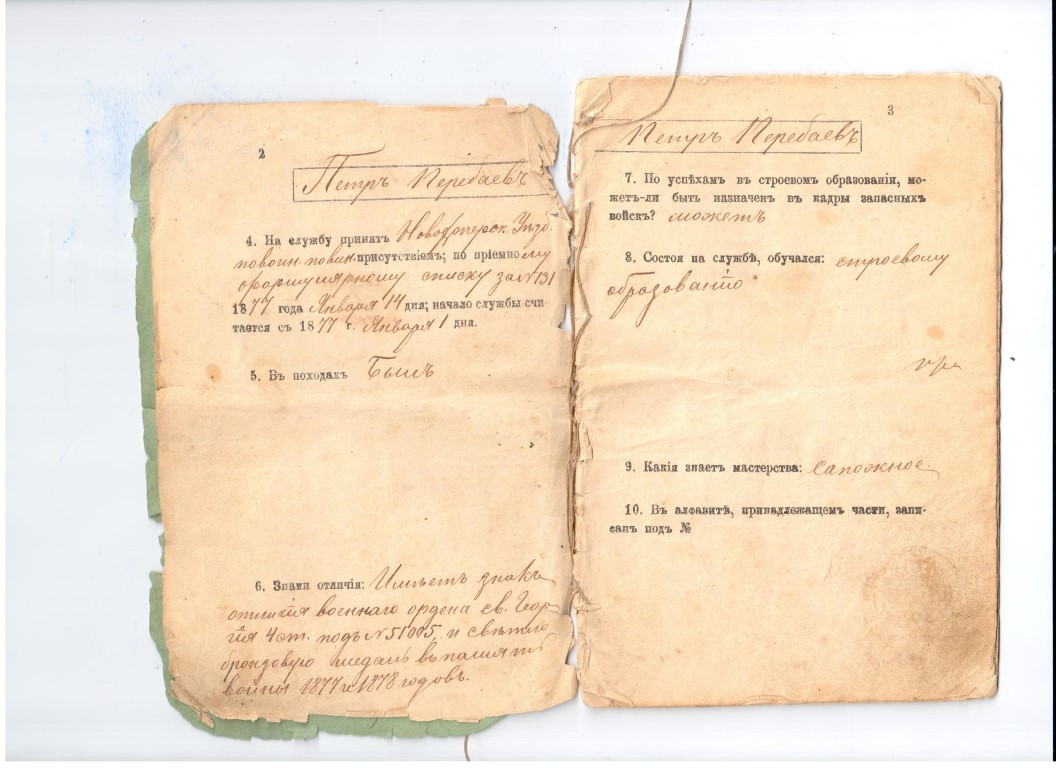 2
Петръ Перебаевъ
4. На службу принятъ Новохоперск. Уѣзд.
по воин. повин. присутствіемъ; по пріемному
формулярному списку за №131
1877 года Января 14 дня; начало службы счи-
тается съ 1877 г. Января 1 дня.
5. Въ походахъ Былъ
6. Знаки отличія: Имѣетъ знакъ
отличія военнаго ордена св. Геор
гія 4 ст. подъ №51005 и свѣтло
бронзовую медаль въ память
войны 1877 и 1878 годовъ.
3
Петръ Перебаевъ
7. По успѣхамъ въ строевомъ образованіи, мо-
жетъ-ли быть назначен въ кадры запасныхъ
войскъ? можетъ
8. Состоя на службѣ, обучался: строевому
образованію
9. Какія знаетъ мастерства: сапожное
10. Въ алфавитѣ, принадлежащемъ части, запи-
санъ подъ №